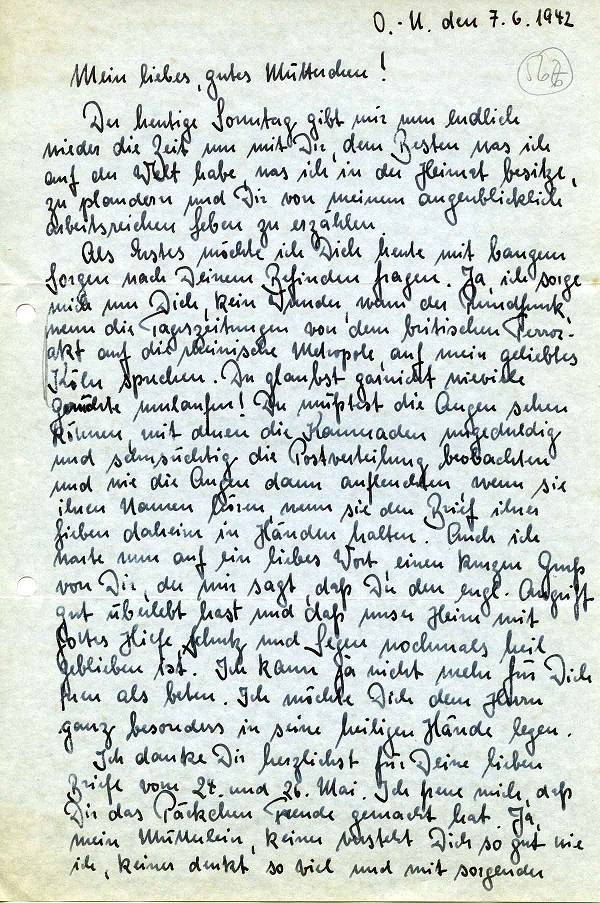 O.-U. den 7.6.1942
Mein liebes, gutes Mütterchen!
Der heutige Sonntag gibt mir nun endlich
wieder die Zeit um mit Dir, dem Besten was ich
auf der Welt habe, was ich in der Heimat besitze,
zu plaudern und Dir von meinem augenblicklich
arbeitsreichen Leben zu erzählen.
Als Erstes möchte ich Dich heute mit bangen
Sorgen nach Deinem Befinden fragen. Ja, ich sorge
mich um Dich, kein Wunder, wenn der Rundfunk,
wenn die Tageszeitungen von dem britischen Terror-
akt auf die rheinische Metropole, auf mein geliebtes
Köln sprechen. Du glaubst garnicht wieviele
Gerüchte umlaufen! Du müßtest die Augen sehen
können, mit denen die Kameraden ungeduldig
und sehnsüchtig die Postverteilung beobachten
und wie die Augen dann aufleuchten wenn sie
ihren Namen hören, wenn sie den Brief ihrer
Lieben daheim in Händen halten. Auch ich
warte nun auf ein liebes Wort, einen kurzen Gruß
von Dir, der mir sagt, daß Du den engl. Angriff
gut überlebt hast und daß unser Heim mit
Gottes Hilfe, Schutz und Segen nochmals heil
geblieben ist. Ich kann ja nicht mehr für Dich
tun als beten. Ich möchte Dich dem Herrn
ganz besonders in seine heiligen Hände legen.
Ich danke Dir herzlichst für Deine lieben
Briefe vom 24. und 26. Mai. Ich freue mich, daß
Dir das Päckchen Freude gemacht hat. Ja,
mein Mütterlein, keiner versteht Dich so gut wie
ich, keiner denkt so viel und mit sorgender